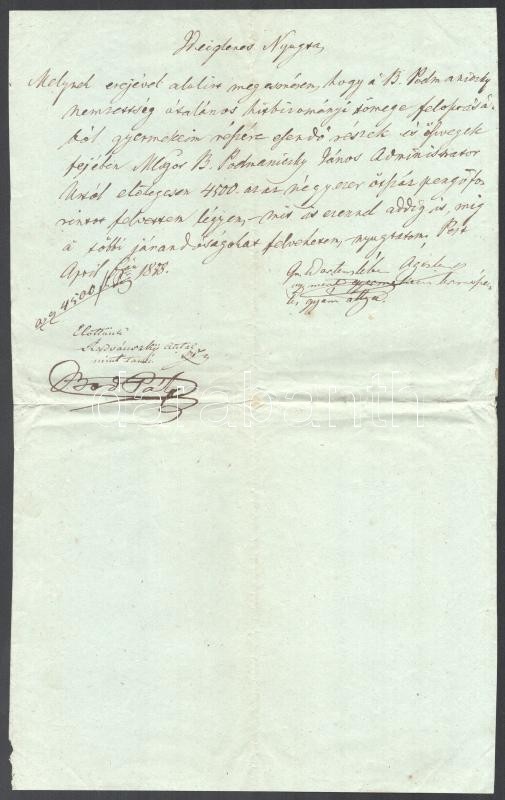 Ideiglenes Nyugta,
Melynek erejével alulirt megesmérem, hogy a B. Podmaniczky
nemzettség átalános hitbizományi tömege feloszlásá-
ból gyermekeim részére esendő részek is öszvegek
fejében Mlgos B. Podmaniczky János Administrator
Urtól előlegesen 4500. azaz négyezer ötszáz pengőfo-
rintot felvettem legyen, mit is ezennel addig is, mig
a többi járandóságokat felvehetem, nyugtatom. Pest
April 18
Gr Wartensleben Ágoston
4500
mint gyermekeim
és gyám attya
Előttünk
Antal
mint tanú
Boda Pál
darabanth